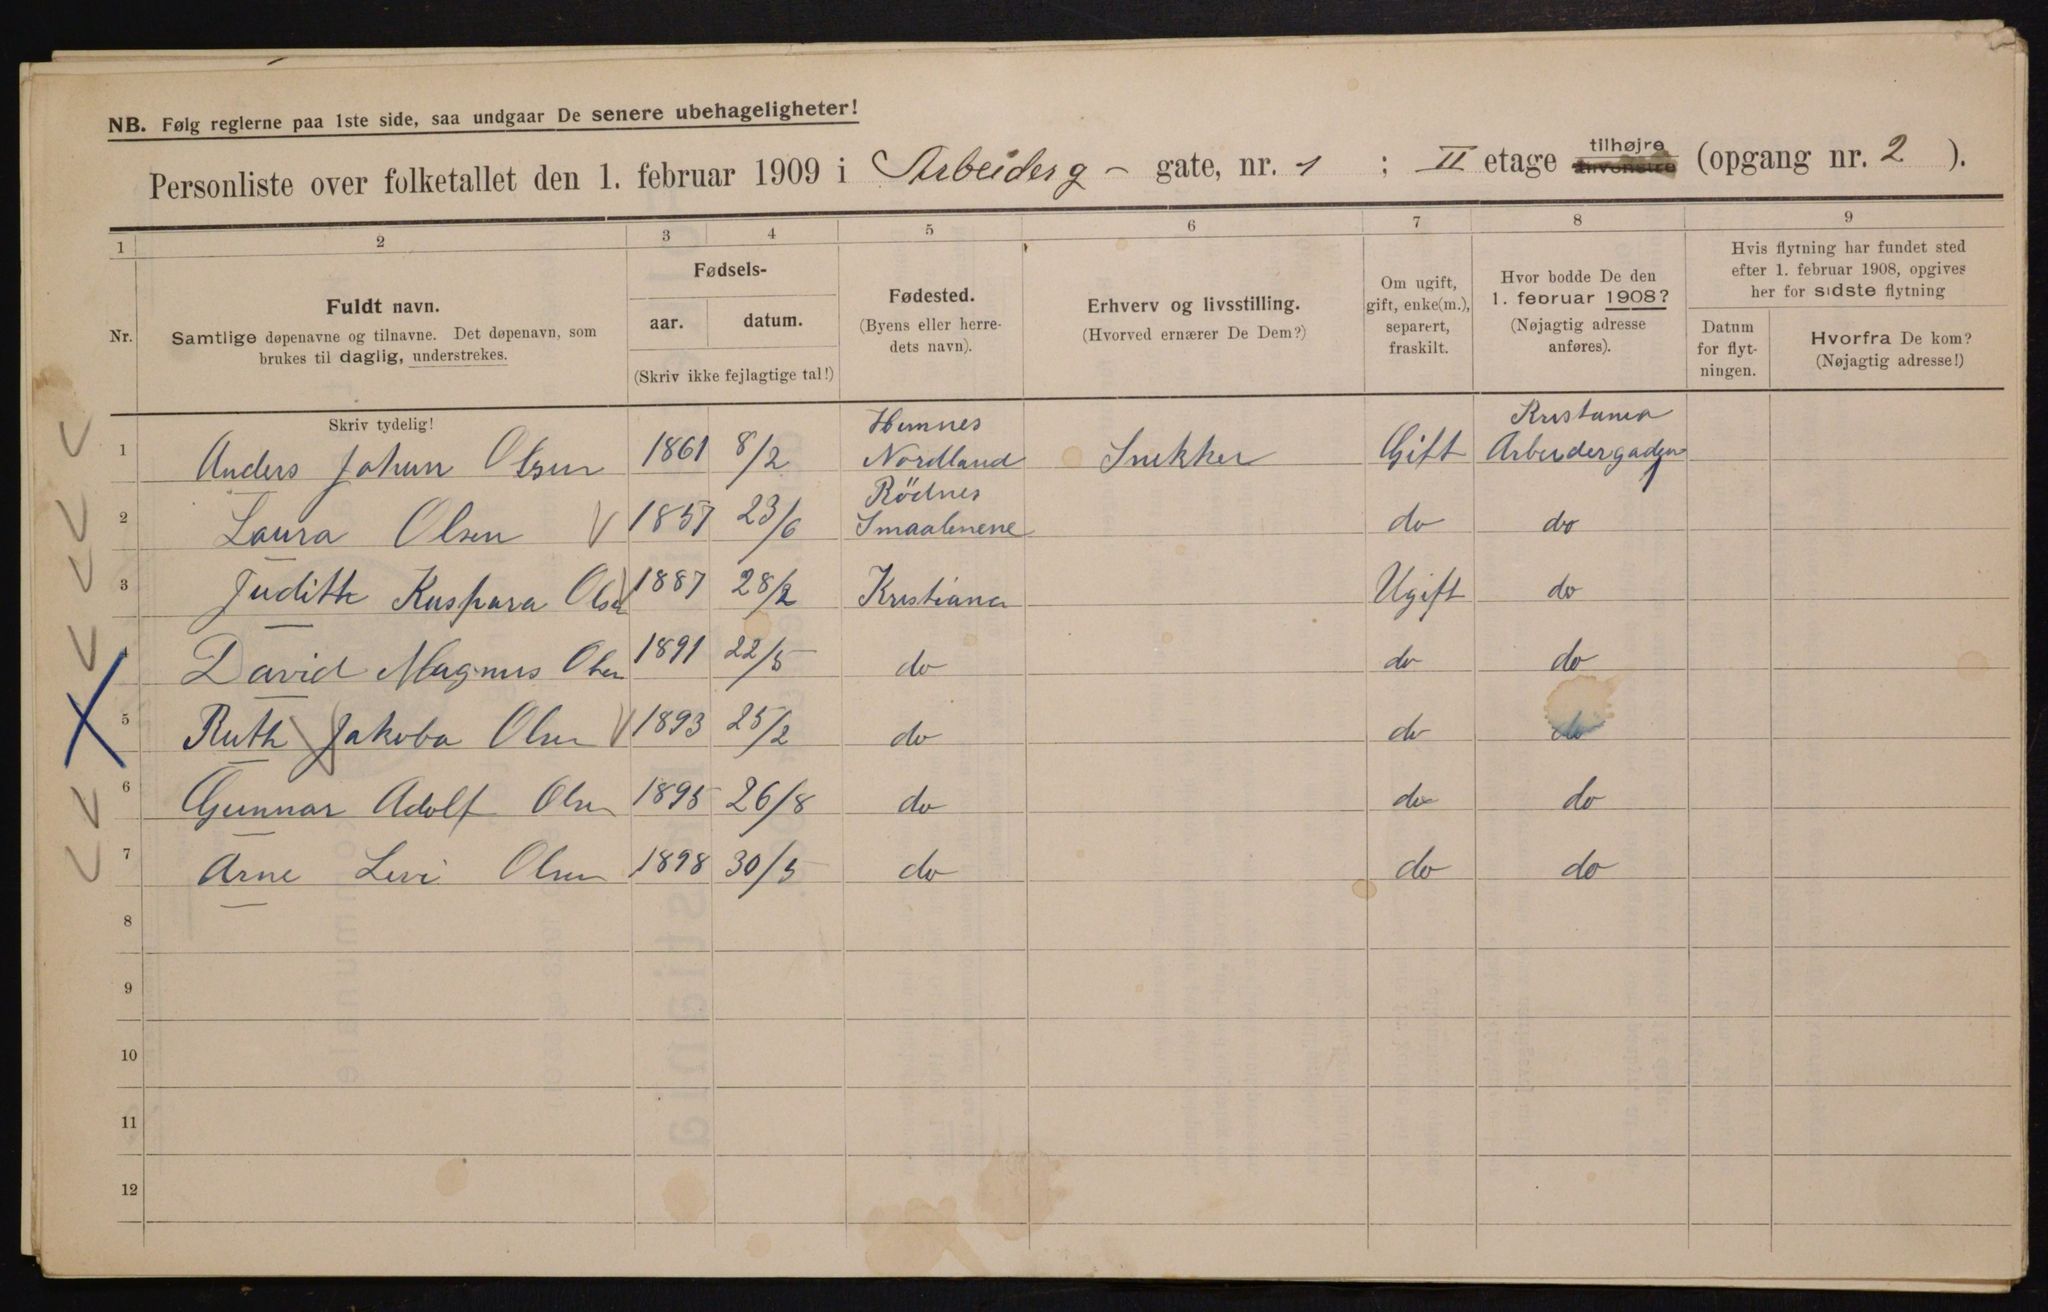 NB. Følg reglerne paa 1ste side, saa undgaar De senere ubehageligheter!
Personliste over folketallet den 1. februar 1909 i Arbeiderg - gate, nr. 1 ; II etage tilhøjre tilvenstre (opgang nr. 2 ).
1 2 3 4 5 6 7 8 9
Nr.
Fuldt navn.
Samtlige døpenavne og tilnavne. Det døpenavn, som
brukes til daglig, understrekes.
Fødsels-
aar. datum.
(Skriv ikke fejlagtige tal!)
Fødested.
(Byens eller herre-
dets navn).
Erhverv og livsstilling.
(Hvorved ernærer De Dem?)
Om ugift,
gift, enke(m.),
separert,
fraskilt.
Hvor bodde De den
1. februar 1908?
(Nøjagtig adresse
anføres).
Hvis flytning har fundet sted
efter 1. februar 1908, opgives
her for sidste flytning
Datum
for flyt-
ningen.
Hvorfra De kom?
(Nøjagtig adresse!)
Skriv tydelig!
Hemnes Kristiania
1 Anders Johan Olsen 1861 8/2 Nordland Snekker Gift Arbeidergaden
Rödnes
2 Laura Olsen 1857 23/6 Smaalenene do do
3 Judith Kaspara Olsen 1887 28/2 Kristiania Ugift do
4 David Magnus Olsen 1891 22/5 do do do
5 Ruth Jakoba Olsen 1893 25/2 do do do
6 Gunnar Adolf Olsen 1895 26/8 do do do
7 Arne Levi Olsen 1898 30/5 do do do
8
9
10
11
12